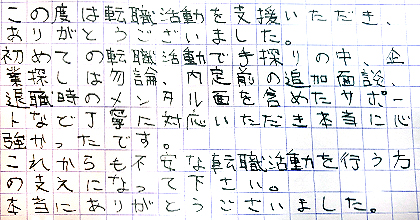 この度は転職活動を支援いただき、
ありがとうございました。
初めての転職活動で手探りの中、企
業探しは勿論、内定前の追加面談、
退職時のメンタル面を含めたサポー
トなど丁寧に対応いただき本当に心
強かったです。
これからも不安な転職活動を行う方
の支えになって下さい。
本当にありがとうございました。